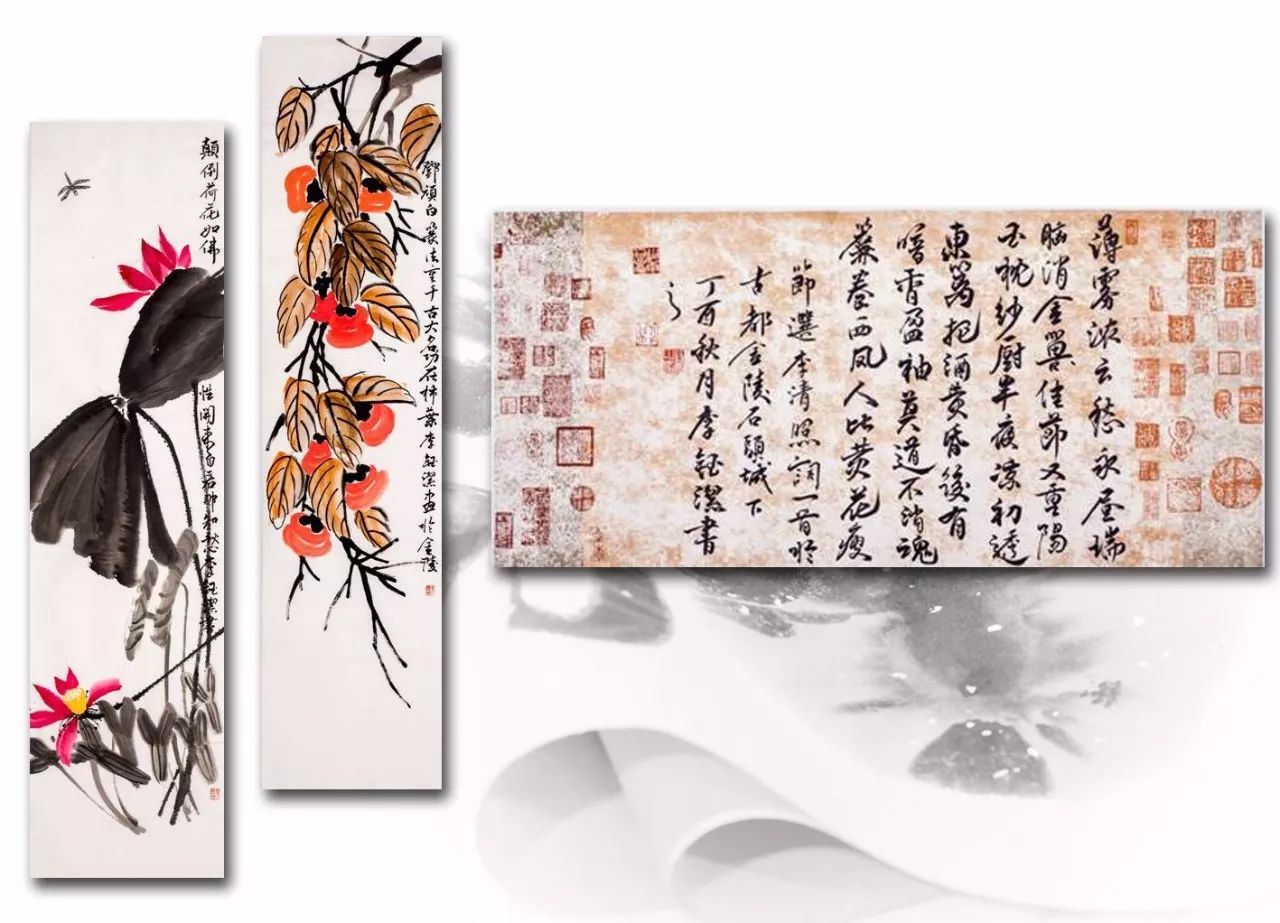 顛倒荷花如佛
李鈺潔書
鄧頑白篆法重千古大名
在柿葉李鈺潔畫於金陵
薄霧濃云愁永昼瑞
腦消金獸佳節又重陽
玉枕紗厨半夜凉初透
東篱把酒黄昏後有
暗香盈袖莫道不消魂
簾卷西风人比黄花瘦
節選李清照詞一首於
古都金陵石頭城下
丁酉秋月李鈺潔書
之